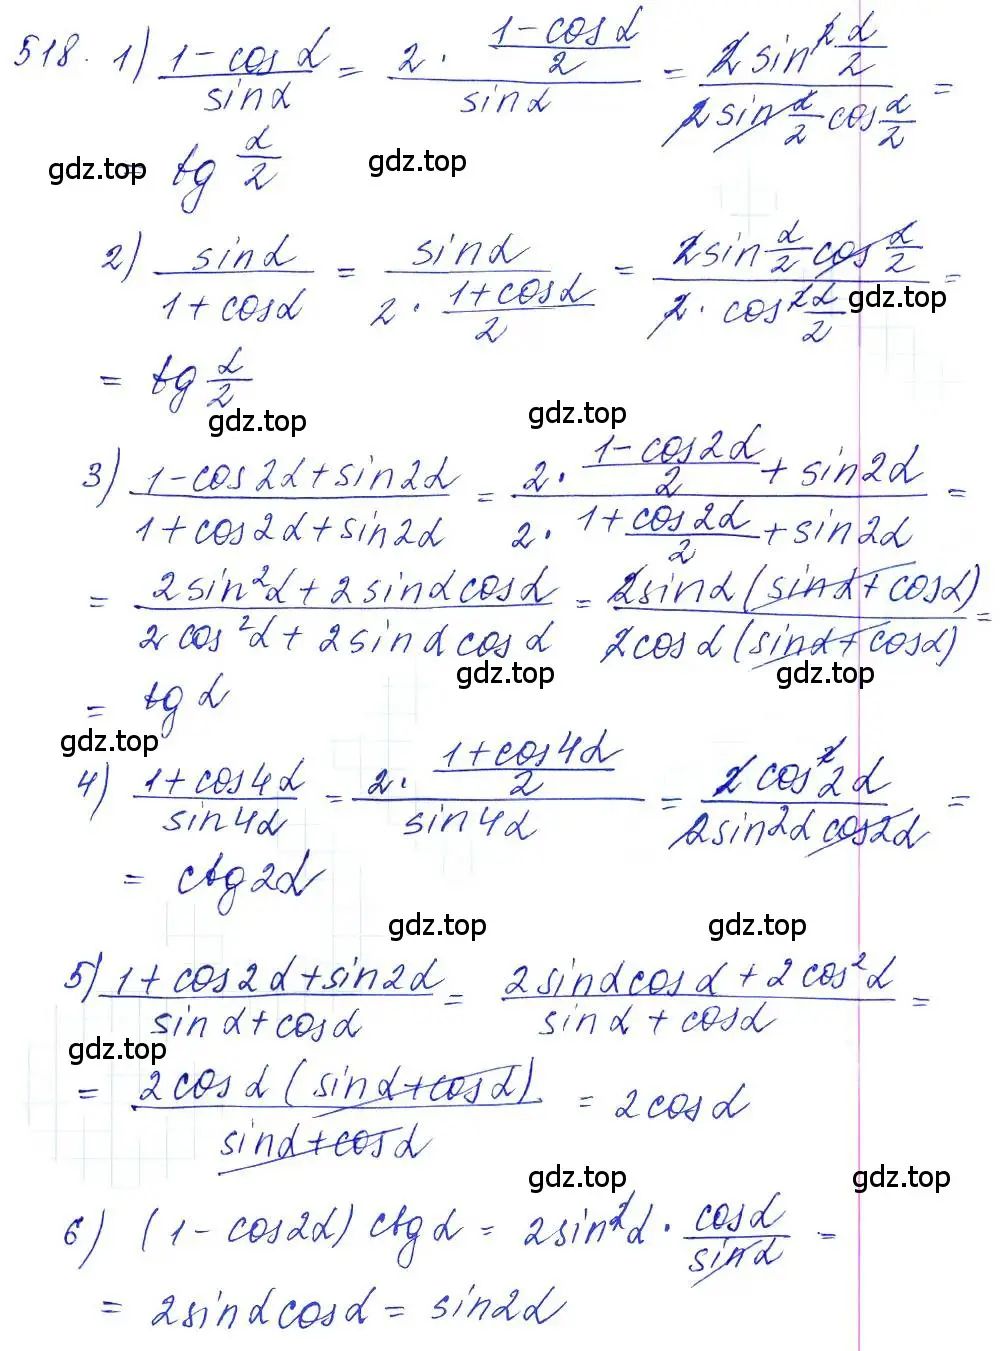 518. 1) (1-cosα)/(sinα) = (2 · (1-cosα)/2)/(sinα) = (2sin²(α/2))/(2sin(α/2)cos(α/2)) =
= tg(α/2)
gdz.top gdz.top
2) (sinα)/(1+cosα) = (sinα)/(2 · (1+cosα)/2) = (2sin(α/2)cos(α/2))/(2 · cos²(α/2)) =
gdz.top
= tg(α/2)
gdz.top gdz.top
3) (1-cos2α+sin2α)/(1+cos2α+sin2α) = (2 · (1-cos2α)/2 + sin2α)/(2 · (1+cos2α)/2 + sin2α) =
= (2sin²α+2sinαcosα)/(2cos²α+2sinαcosα) = (2sinα(sinα+cosα))/(2cosα(sinα+cosα)) =
gdz.top gdz.top
= tgα
gdz.top
4) (1+cos4α)/(sin4α) = (2 · (1+cos4α)/2)/(sin4α) = (2cos²2α)/(2sin2αcos2α) =
= ctg2α
gdz.top gdz.top
5) (1+cos2α+sin2α)/(sinα+cosα) = (2sinαcosα+2cos²α)/(sinα+cosα) =
gdz.top
= (2cosα(sinα+cosα))/(sinα+cosα) = 2cosα
gdz.top gdz.top
6) (1-cos2α)ctgα = 2sin²α · (cosα)/(sinα) =
= 2sinαcosα = sin2α